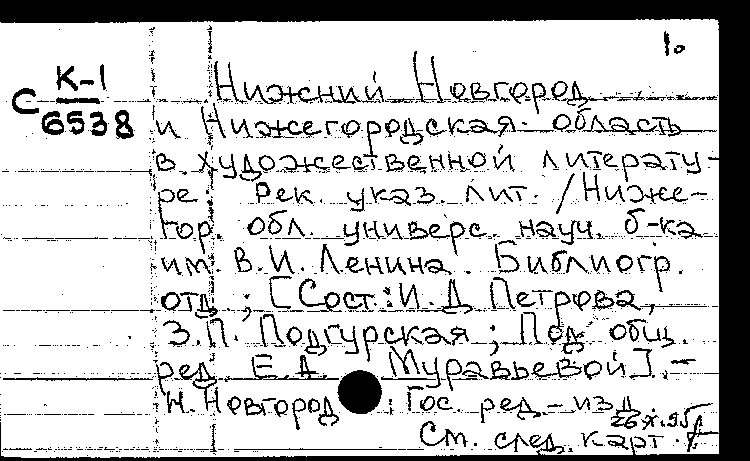 10
К-1
С 6538
Нижний Новгород
и Нижегородская область
в художественной литерату-
ре: Рек. указ. лит. / Ниже-
гор. обл. универс. науч. б-ка
им. В.И. Ленина. Библиогр.
отд.; [Сост.: И.Д. Петрова,
З.П. Подгурская; Под общ.
ред. Е.А. Муравьевой]. -
Н.Новгород : Гос. ред.-изд.
См. след. карт.